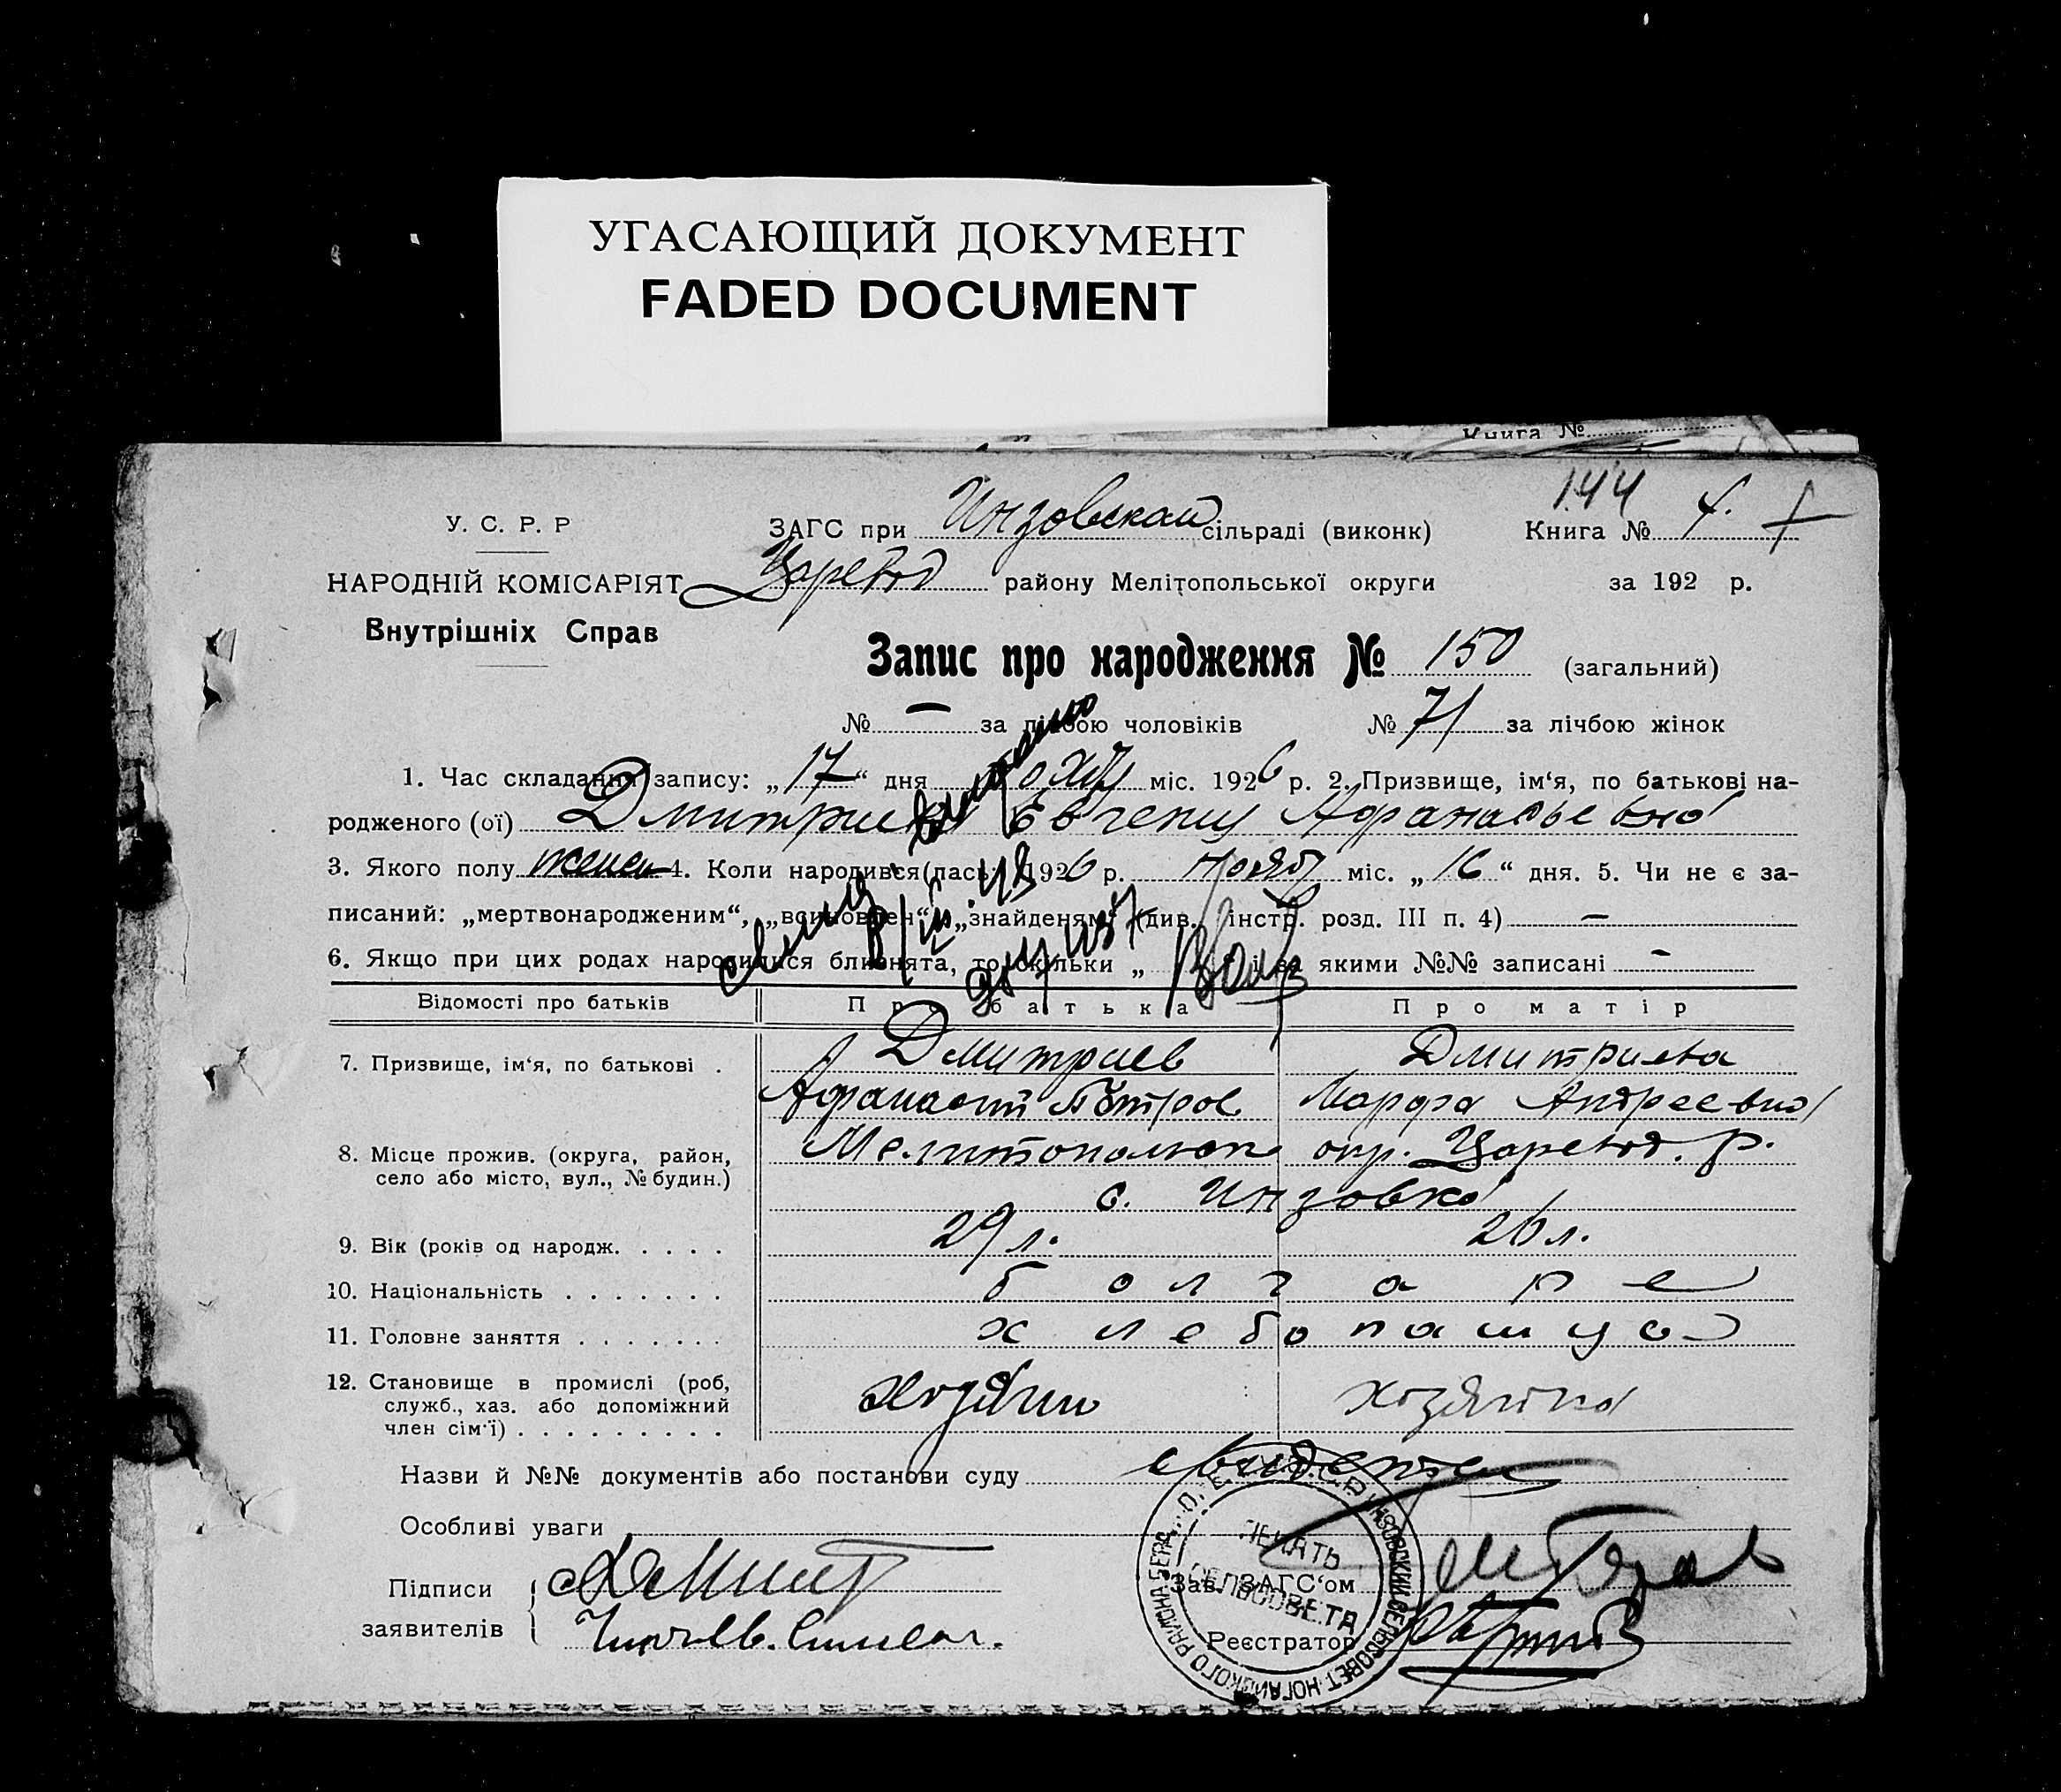 УГАСАЮЩИЙ ДОКУМЕНТ
FADED DOCUMENT
Книга №
144
У. С. Р. Р
ЗАГС при Инзовской сільраді (виконк)
Книга № 4.
НАРОДНІЙ КОМІСАРІЯТ
Царевод району Мелітопольської округи
за 192 р.
Внутрішніх Справ
Запис про народження № 150 (загальний)
№ — за лічбою чоловіків № 71 за лічбою жінок
1. Час складання запису: „17“ дня міс. 1926 р. 2. Призвище, ім‘я, по батькові на-
родженого (ої) Евгения Афанасьевна
3. Якого полу женск 4. Коли народився(лась) 1926 р. нояб міс. „16“ дня. 5. Чи не є за-
писаний: „мертвонародженим“, „всиновлен“, „знайденям“ (див. інстр. розд. III п. 4) —
6. Якщо при цих родах народилися близнята, то скільки „ і за якими №№ записані -
Відомості про батьків
Про батька
Про матір
7. Призвище, ім‘я, по батькові .
Дмитриев
Дмитриева
Афанасий Петров
Марфа Андреевна
8. Місце прожив. (округа, район,
село або місто, вул., № будин.)
Мелитопольск окр. Царевод. р.
с. Инзовка
9. Вік (років од народж. . . . .
29 л.
26 л.
10. Національність . . . . . . .
болгаре
11. Головне заняття . . . . . . .
хлебопашцы
12. Становище в промислі (роб,
служб., хаз. або допоміжний
член сім‘ї) . . . . . . . . .
Хозяин
хозяйка
Назви й №№ документів або постанови суду
Особливі уваги
Підписи
заявителів
ПЕЧАТЬ
СЕЛЬСОВЕТА
ИНЗОВСКИЙ СЕЛЬСОВЕТ НОГАЙСКОГО РАЙОНА
Зав. ЗАГС‘ом
Реєстратор